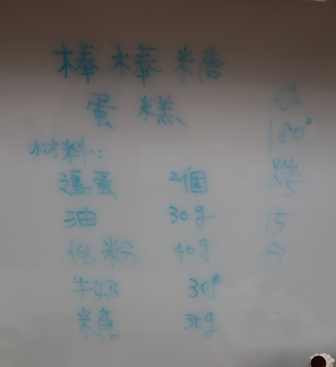 棒棒糖
蛋糕
材料:
蛋 2個
油 30g
低粉 40g
牛奶 30g
糖 30g
180°
烤
15
分